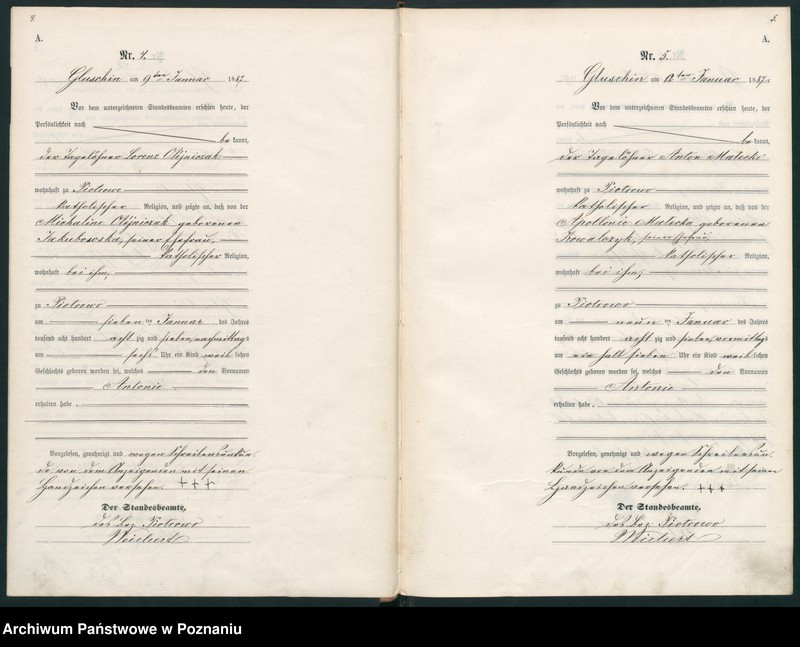 4.
A.
Nr. 4.
Gluschin am 9ten Januar 1887
Vor dem unterzeichneten Standesbeamten erschien heute, der
Persönlichkeit nach
bekannt,
der Tagelöhner Lorenz Olejniczak
wohnhaft zu Piotrowo
katholischer Religion, und zeigte an, daß von der
Michaline Olejniczak geborenen
Jakubowska, seiner Ehefrau,
katholischer Religion,
wohnhaft bei ihm,
zu Piotrowo
am sieben ten Januar des Jahres
tausend acht hundert acht zig und sieben, nachmittags
um sechs Uhr ein Kind weib lichen
Geschlechts geboren worden sei, welches den Vornamen
Antonie
erhalten habe.
Vorgelesen, genehmigt und wegen Schreibensunkun
de von dem Anzeigenden mit seinen
Handzeichen versehen. +++
Der Standesbeamte,
des Bez. Piotrowo
5.
A.
Nr. 5.
Gluschin am 12ten Januar 1887
Vor dem unterzeichneten Standesbeamten erschien heute, der
Persönlichkeit nach
bekannt,
der Tagelöhner Anton Malecki
wohnhaft zu Piotrowo
katholischer Religion, und zeigte an, daß von der
Apollonie Malecka geborenen
Kowalczyk, seiner Ehefrau,
katholischer Religion,
wohnhaft bei ihm,
zu Piotrowo
am neun ten Januar des Jahres
tausend acht hundert acht zig und sieben, vormittags
um ein halb sieben Uhr ein Kind weib lichen
Geschlechts geboren worden sei, welches den Vornamen
Antonie
erhalten habe.
Vorgelesen, genehmigt und wegen Schreibensun
kunde von dem Anzeigenden mit seinen
Handzeichen versehen. +++
Der Standesbeamte,
des Bez. Piotrowo
Archiwum Państwowe w Poznaniu